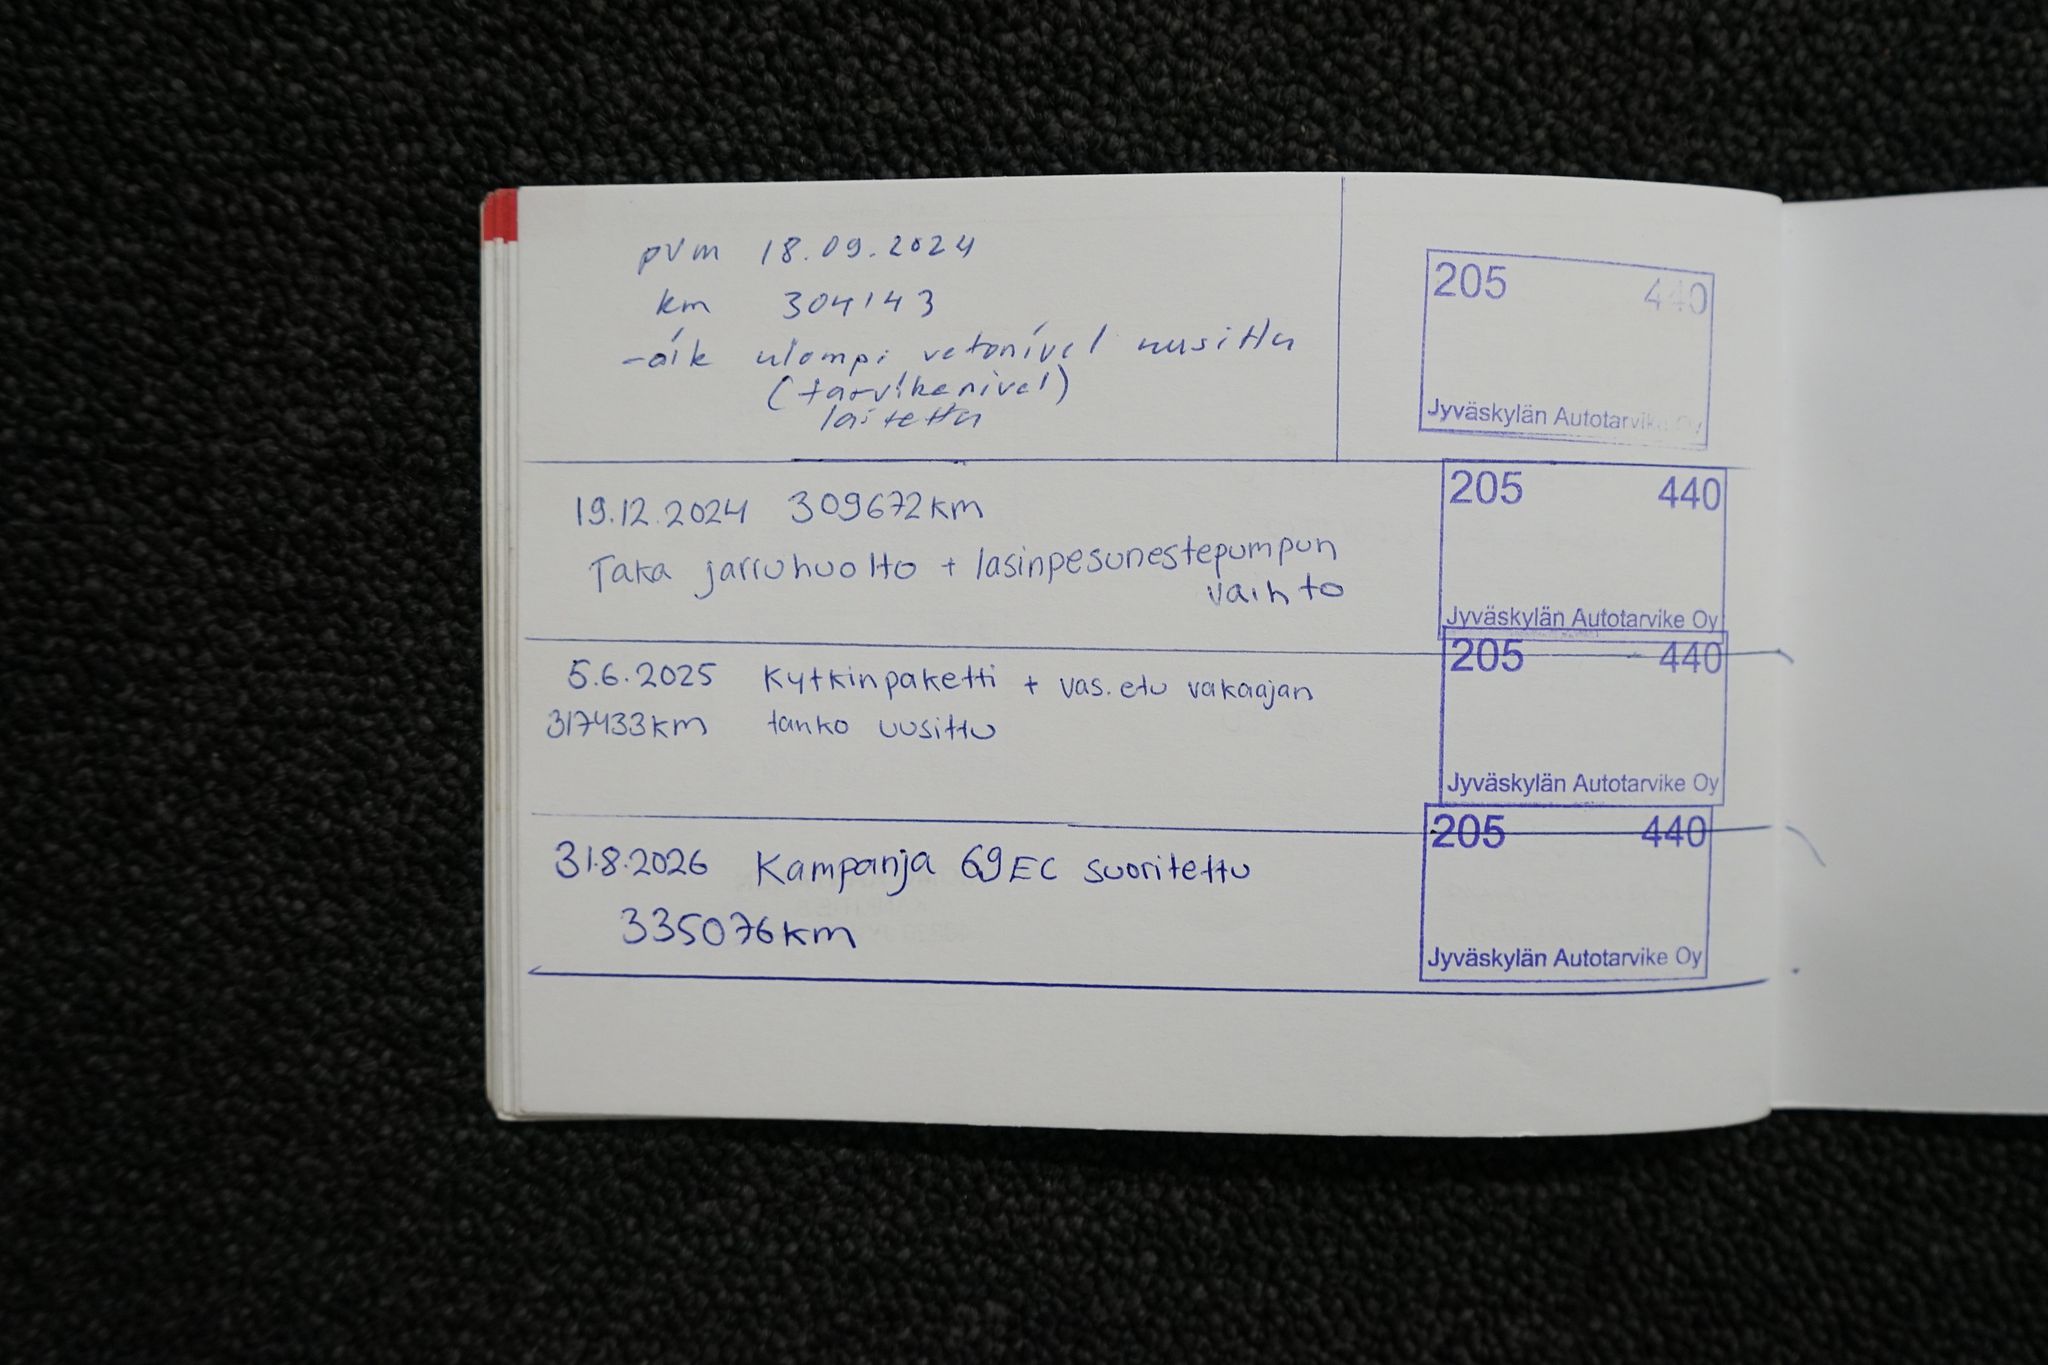 pvm 18.09.2024
km 304143
-oik ulompi vetonivel uusittu
(tarvikenivel)
laitettu
205 440
Jyväskylän Autotarvike Oy
19.12.2024 309672km
Taka jarruhuolto + lasinpesunestepumpun
vaihto
205 440
Jyväskylän Autotarvike Oy
5.6.2025 Kytkinpaketti + vas. etu vakaajan
317433km tanko uusittu
205 440
Jyväskylän Autotarvike Oy
31.8.2026 Kampanja 69EC suoritettu
335076km
205 440
Jyväskylän Autotarvike Oy